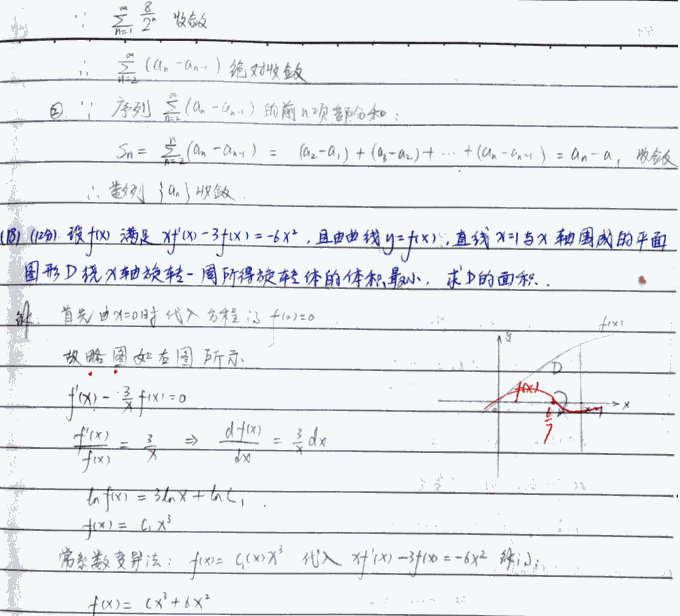 ∵ ∑_{n=1}^{∞} 8/2^n 收敛
∴ ∑_{n=2}^{∞} (a_n - a_{n-1}) 绝对收敛
② ∵ 序列 ∑_{n=2}^{∞} (a_n - a_{n-1}) 的前n项部分和:
S_n = ∑_{n=2}^{n} (a_n - a_{n-1}) = (a_2 - a_1) + (a_3 - a_2) + ··· + (a_n - a_{n-1}) = a_n - a_1 收敛
∴ 数列 {a_n} 收敛
(18) (12分) 设f(x) 满足 xf'(x) - 3f(x) = -6x², 且由曲线 y=f(x), 直线 x=1 与 x 轴围成的平面
图形 D 绕 x 轴旋转一周所得旋转体的体积最小, 求 D 的面积.
解. 首先由 x=0时 代入方程得 f(0)=0
故略图如右图所示
y
f(x)
D
f(x)
x
6/7
f'(x) - 3/x f(x) = 0
f'(x)/f(x) = 3/x ⇒ df(x)/dx = 3/x dx
ln f(x) = 3lnx + lnC_1
f(x) = C_1 x³
常系数变异法: f(x) = C_1(x) x³ 代入 xf'(x) - 3f(x) = -6x² 解得:
f(x) = Cx³ + 6x²